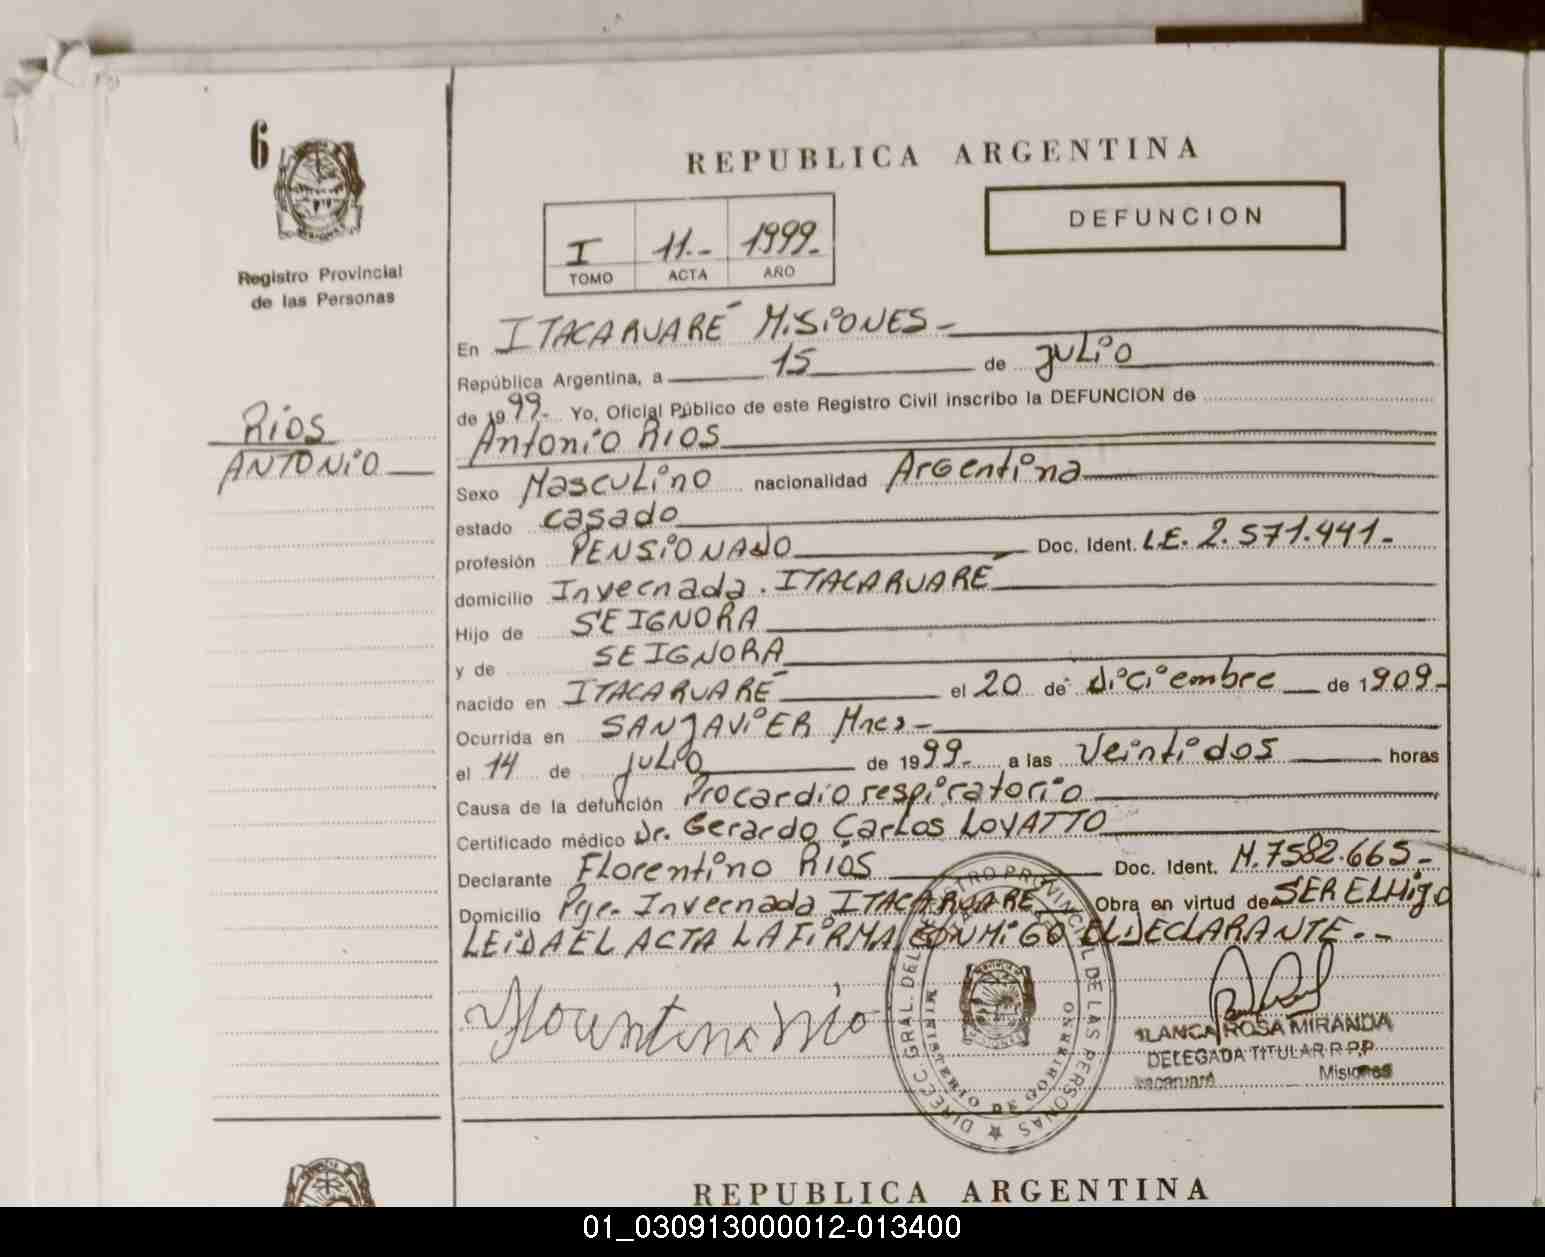 6
Registro Provincial
de las Personas
Rios
ANTONIO
REPUBLICA ARGENTINA
DEFUNCION
I 11.- 1999.-
TOMO ACTA AÑO
En ITACARUARÉ MISIONES-
República Argentina, a 15 de JULIO
de 1999.- Yo, Oficial Público de este Registro Civil inscribo la DEFUNCION de
Antonio RIOS
Sexo MascuLino nacionalidad ArGentina
estado casado
profesión PENSIONADO Doc. Ident. L.E. 2.571.441-
domicilio Invernada. ITACARUARÉ
Hijo de SE IGNORA
y de SE IGNORA
nacido en ITACARUARÉ el 20 de diciembre de 1909-
Ocurrida en SAN JAVIER Mnes-
el 14 de JULIO de 1999.- a las Veintidos horas
Causa de la defunción Procardio respiratorio
Certificado médico Dr. Gerardo CarLos LOVATTO
Declarante FLorentino RIOS Doc. Ident. M.7582.665-
Domicilio Pje. Invernada ITACARUARE Obra en virtud de SER EL HIJO
LEIDA EL ACTA LA FIRMA CONMIGO EL DECLARANTE.-
DIRECC. GRAL. DEL REGISTRO PROVINCIAL DE LAS PERSONAS
MINISTERIO DE GOBIERNO
BLANCA ROSA MIRANDA
DELEGADA TITULAR R.P.P.
Itacaruaré Misiones
REPUBLICA ARGENTINA
01_030913000012-013400